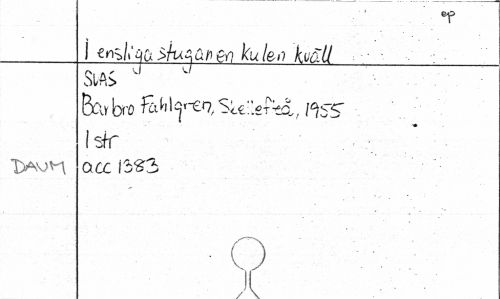 ep
I ensliga stugan en kulen kväll
SVAS
Barbro Fahlgren, Skellefteå, 1955
1 str
DAUM acc 1383